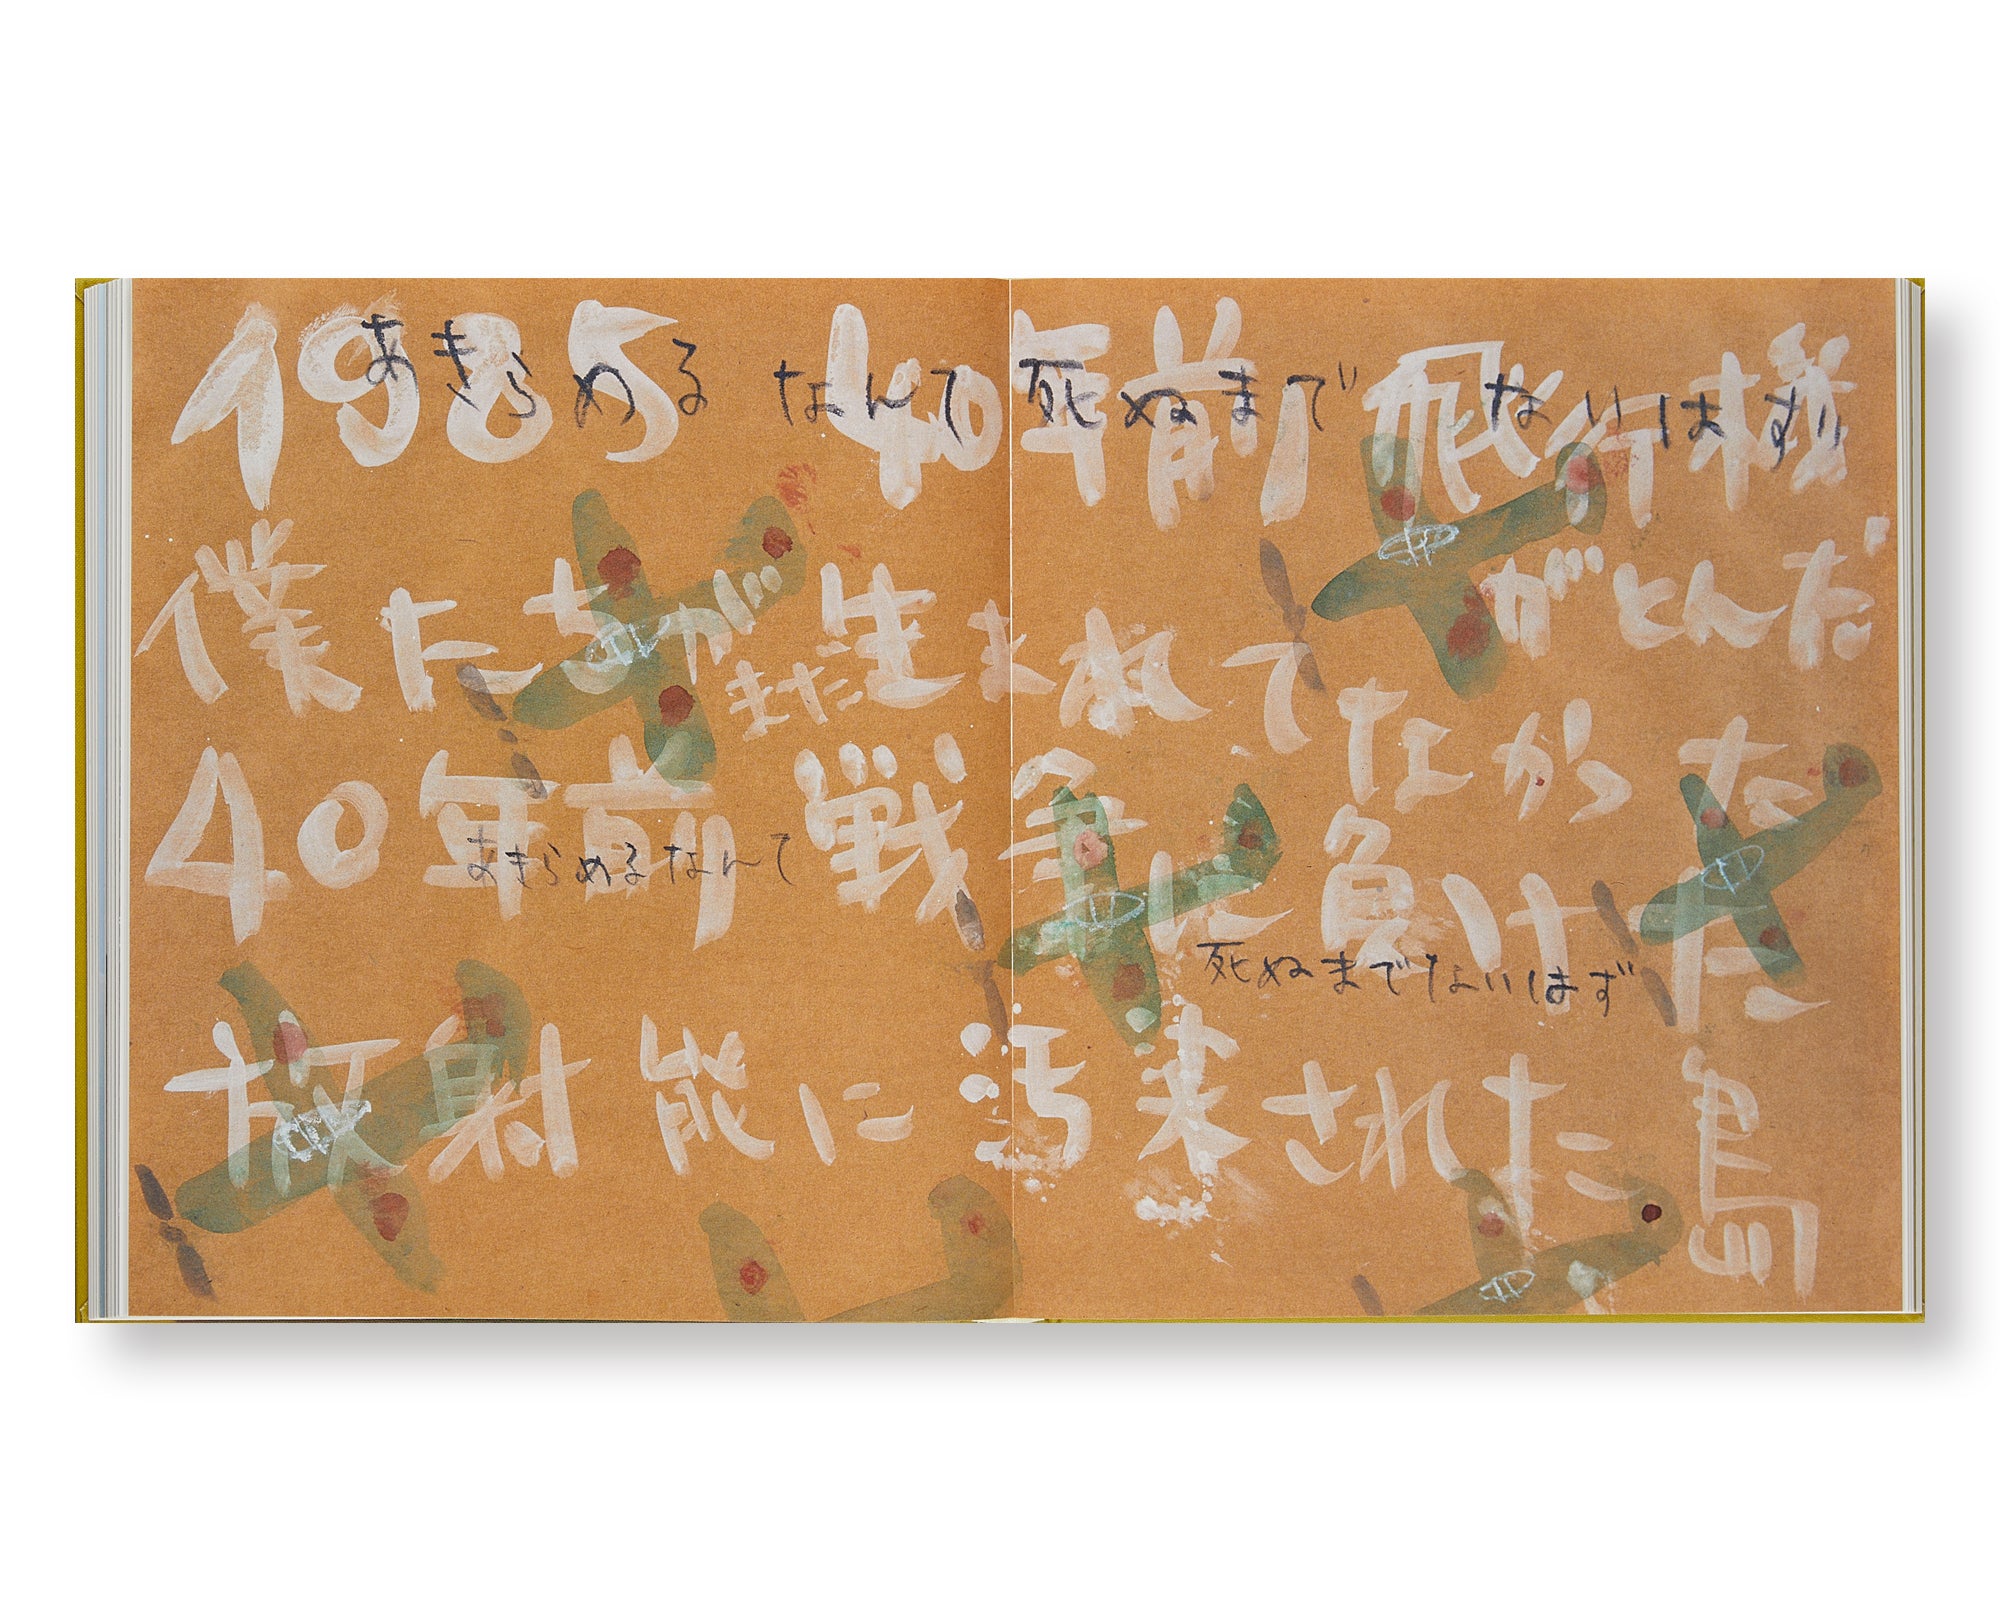 1985 40年前 飛行機
あきらめる なんて 死ぬまで ないはず
がとんだ
僕たちがまだ生まれてなかった
40年前 戦争に負けた
あきらめるなんて
死ぬまでないはず
放射能に汚染された島